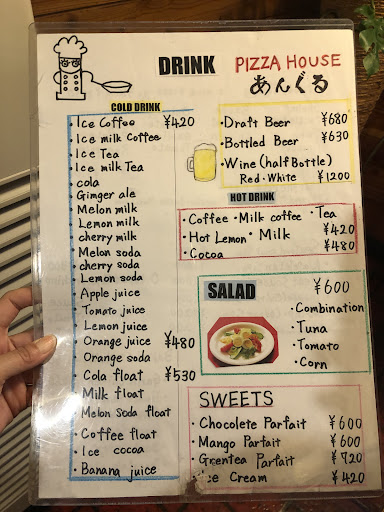 DRINK PIZZA HOUSE
あんぐる
COLD DRINK
・Ice Coffee ¥420
・Ice milk Coffee
・Ice Tea
・Ice milk Tea
・cola
・Ginger ale
・Melon milk
・Lemon milk
・cherry milk
・Melon soda
・cherry soda
・Lemon soda
・Apple juice
・Tomato juice
・Lemon juice
・Orange juice ¥480
・Orange soda
・Cola float ¥530
・Milk float
・Melon Soda float
・Coffee float
・Ice cocoa
・Banana juice
・Draft Beer ¥680
・Bottled Beer ¥630
・Wine (half Bottle)
Red・White ¥1200
HOT DRINK
・Coffee ・Milk coffee ・Tea
¥420
・Hot Lemon ・Milk
¥480
・Cocoa
SALAD ¥600
・Combination
・Tuna
・Tomato
・Corn
SWEETS
・Chocolete Parfait ¥600
・Mango Parfait ¥600
・Greentea Parfait ¥720
・Ice Cream ¥420